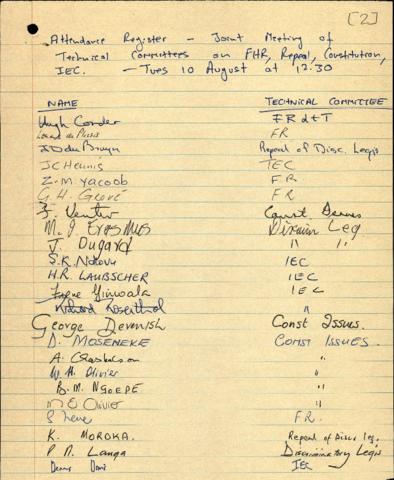 [2]
Attendance Register - Joint Meeting of
Technical Committees on FHR, Repeal, Constitution,
IEC. - Tues 10 August at 12:30
NAME TECHNICAL COMMITTEE
Hugh Corder FR & T
Lourens du Plessis FR
J D du Bruyn Repeal of Disc. Legis
JC Heunis TEC
Z.M. Yacoob F.R
G H Grové F.R
F. Venter Const Issues
M. J Erasmus Discrim Leg
J. Dugard " "
S.K. Ndlovu IEC
H.R. LAUBSCHER IEC
Frene Ginwala IEC
Richard Rosenthal "
George Devenish Const Issues.
D. MOSENEKE CONST ISSUES.
A. Chaskalson "
W. H. Olivier "
B. M. NGOEPE "
M E Olivier "
S Nene F.R.
K. MOROKA. Repeal of Disc leg.
P N Langa Discriminatory Legis
Dennis Davis IEC